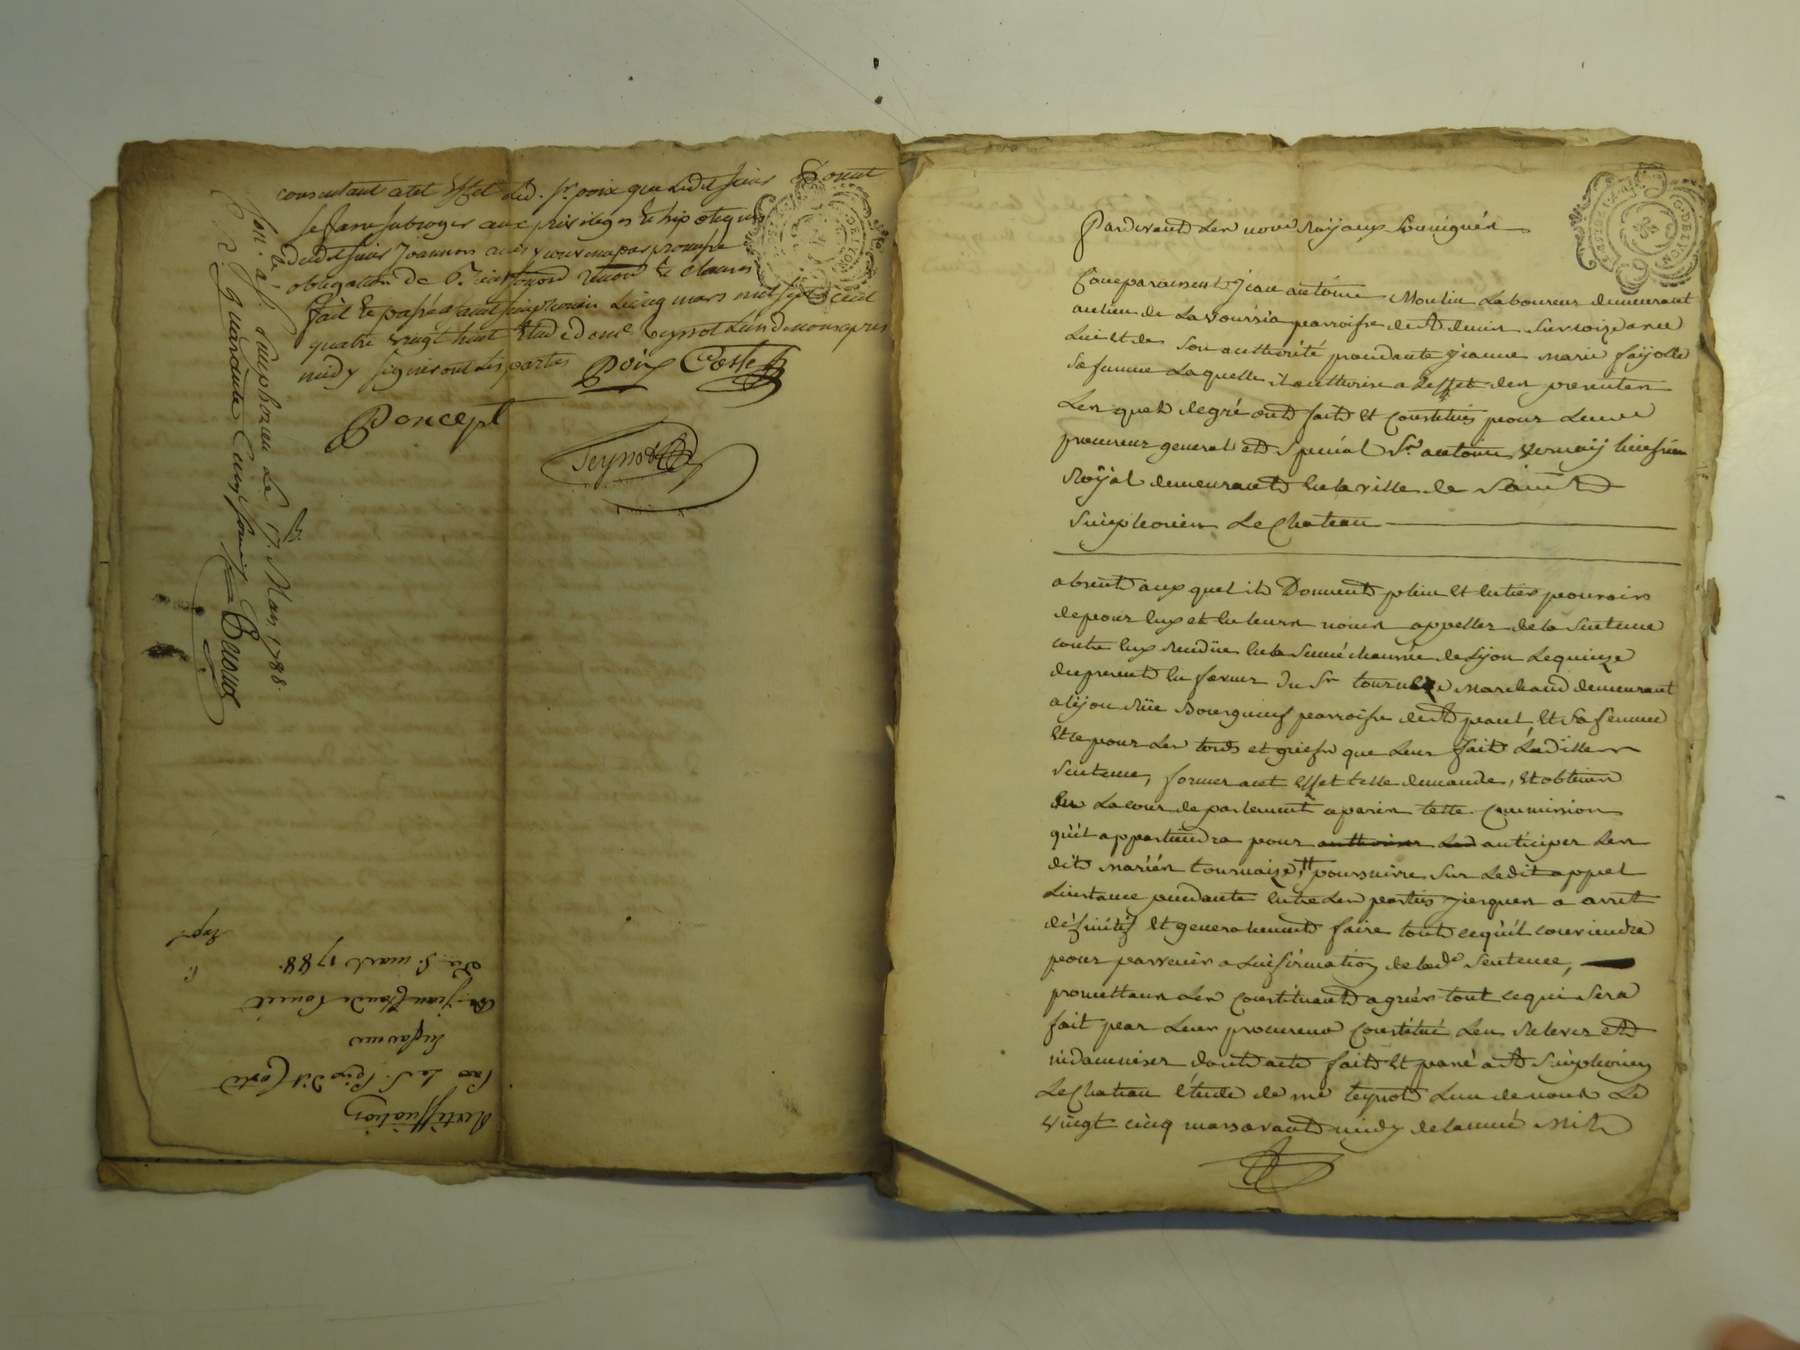 consentant a cet effet led. sr. poix que ledit sieur Poncet
se fasse subroger aux privileges & hipoteques
dudit sieur Joannon
obligation de
fait & passé a saint simphorien le cinq mars mil sept cent
quatre vingt huit Etude de me teynot l'un de nous apres
midy signeront les parties
Poix Coste
Poncept
Teynot
Con. a St. simphorien Le 17. Mars 1788.
R. quarante cinq sous
Rectiffication
Par Le S. Poix dit Coste
En faveur
De jean Claude Poncet
Du 5. mars 1788.
Pardevant Les notres Royaux soussignés
Comparaissent jean antoine Moulin Laboureur demeurant
au lieu de La parroisse de St denis sur coize avec
Lui et de son authorité procedante jeanne marie fayolle
sa femme Laquelle il authorise a L'effet des presentes
Lesquels de gré ont fait et constitués pour Leur
procureur general et special Sr. antoine vernay huissier
Royal demeurant en la ville de Saint
Simphorien Le Chateau
absent auxquel ils Donnent plein et entier pouvoir
de pour eux et en leurs noms appeller de la sentence
contre eux rendüe en la senechaussée de Lyon Le quinze
du present en faveur du Sr tournaize marchand demeurant
a lyon Rüe Bourgneuf parroisse de St paul et sa femme
et ce pour Les torts et griefs que Leur fait Laditte
sentence, former a cet effet telle demande, et obtenir
en La cour de parlement a paris telle Commission
qu'il appartiendra pour authoriser Led anticiper Les
dits mariés tournaize, poursuivre sur Ledit appel
L'instance pendante entre Les parties jusques a arret
déffinitif et generalement faire tout ce qu'il conviendra
pour parvenir a L'infirmation de lade sentence,
promettans Les Constituants agréer tout ce qui sera
fait par Leur procureur Constitué Les relever et
indamniser dont acte fait et passé a St simphorien
Le Chateau étude de me teynot L'un de nous Le
vingt cinq mars avant midy de L'année Mil